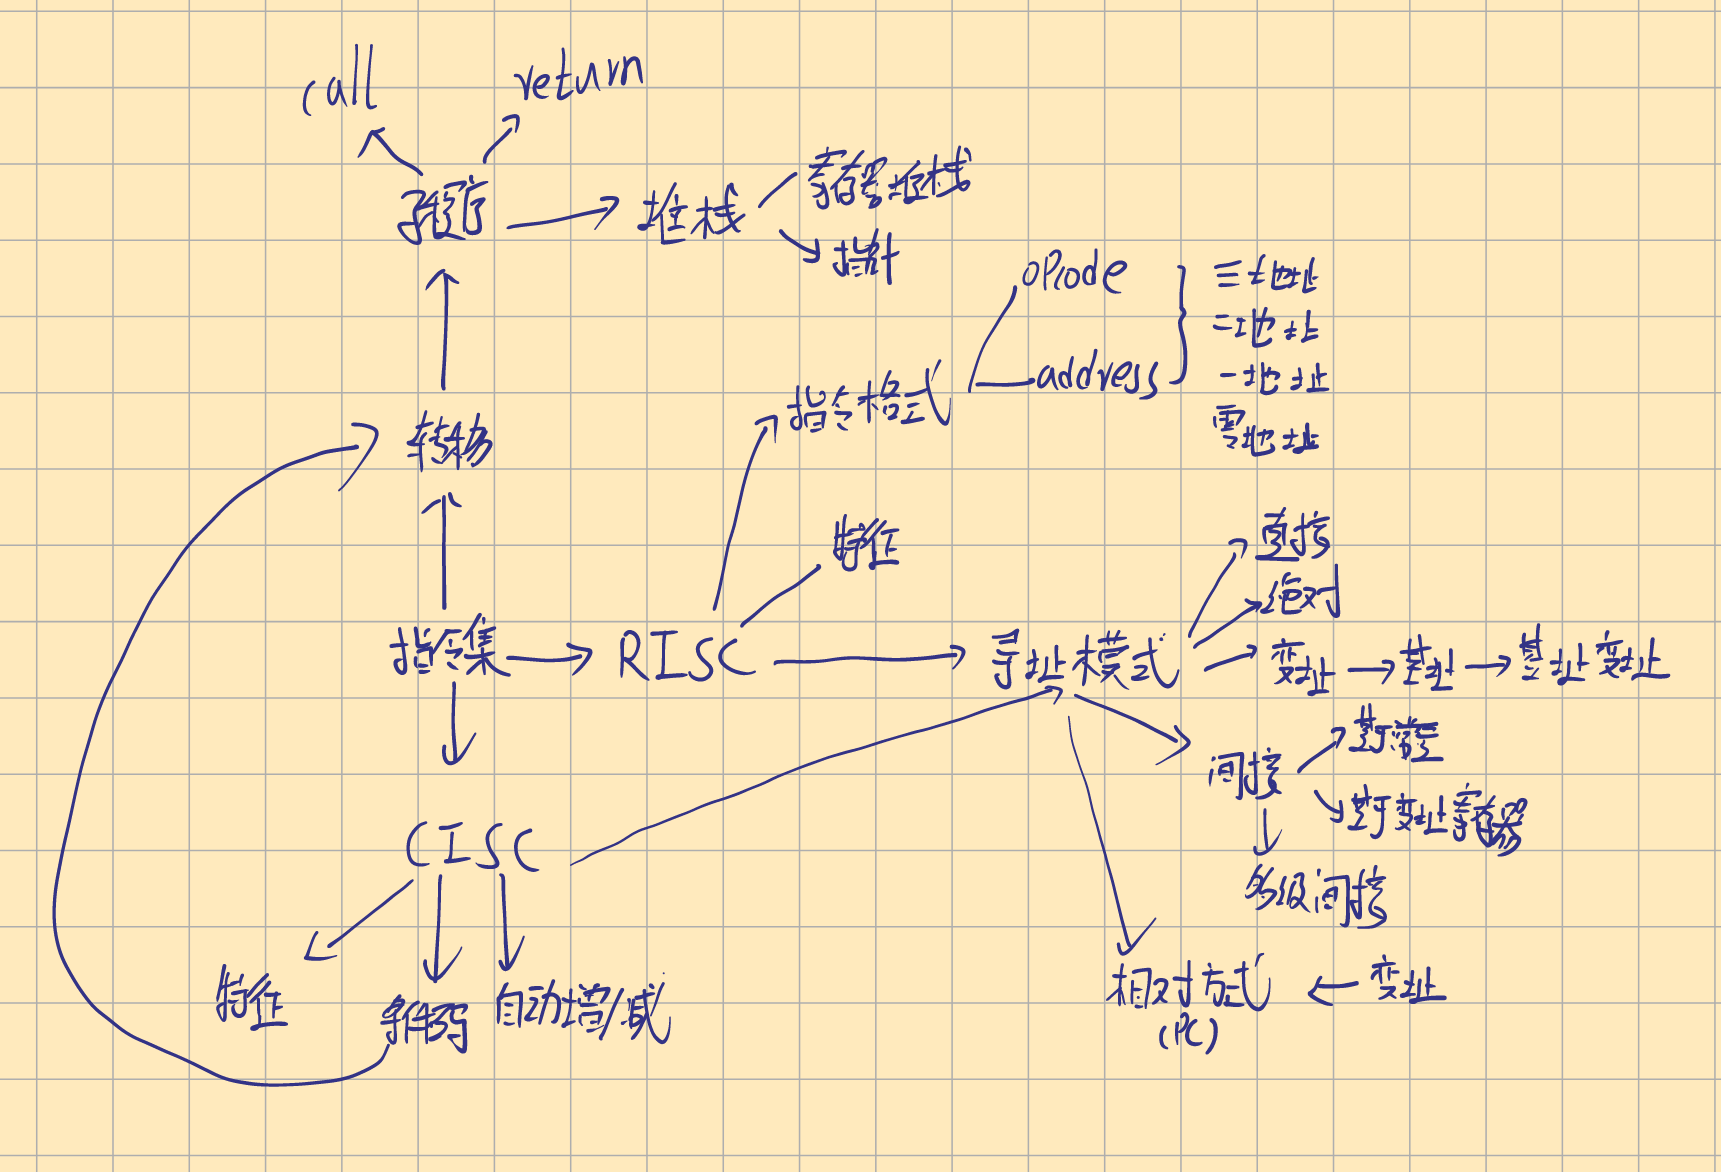 call
return
子程序
堆栈
寄存器堆栈
指针
opcode
address
三地址
二地址
一地址
零地址
指令格式
转移
特征
指令集
RISC
寻址模式
直接
绝对
变址
基址
基址变址
间接
基于变址寄存器
多级间接
CISC
特征
条件码
自动增/减
相对方式
(PC)
变址